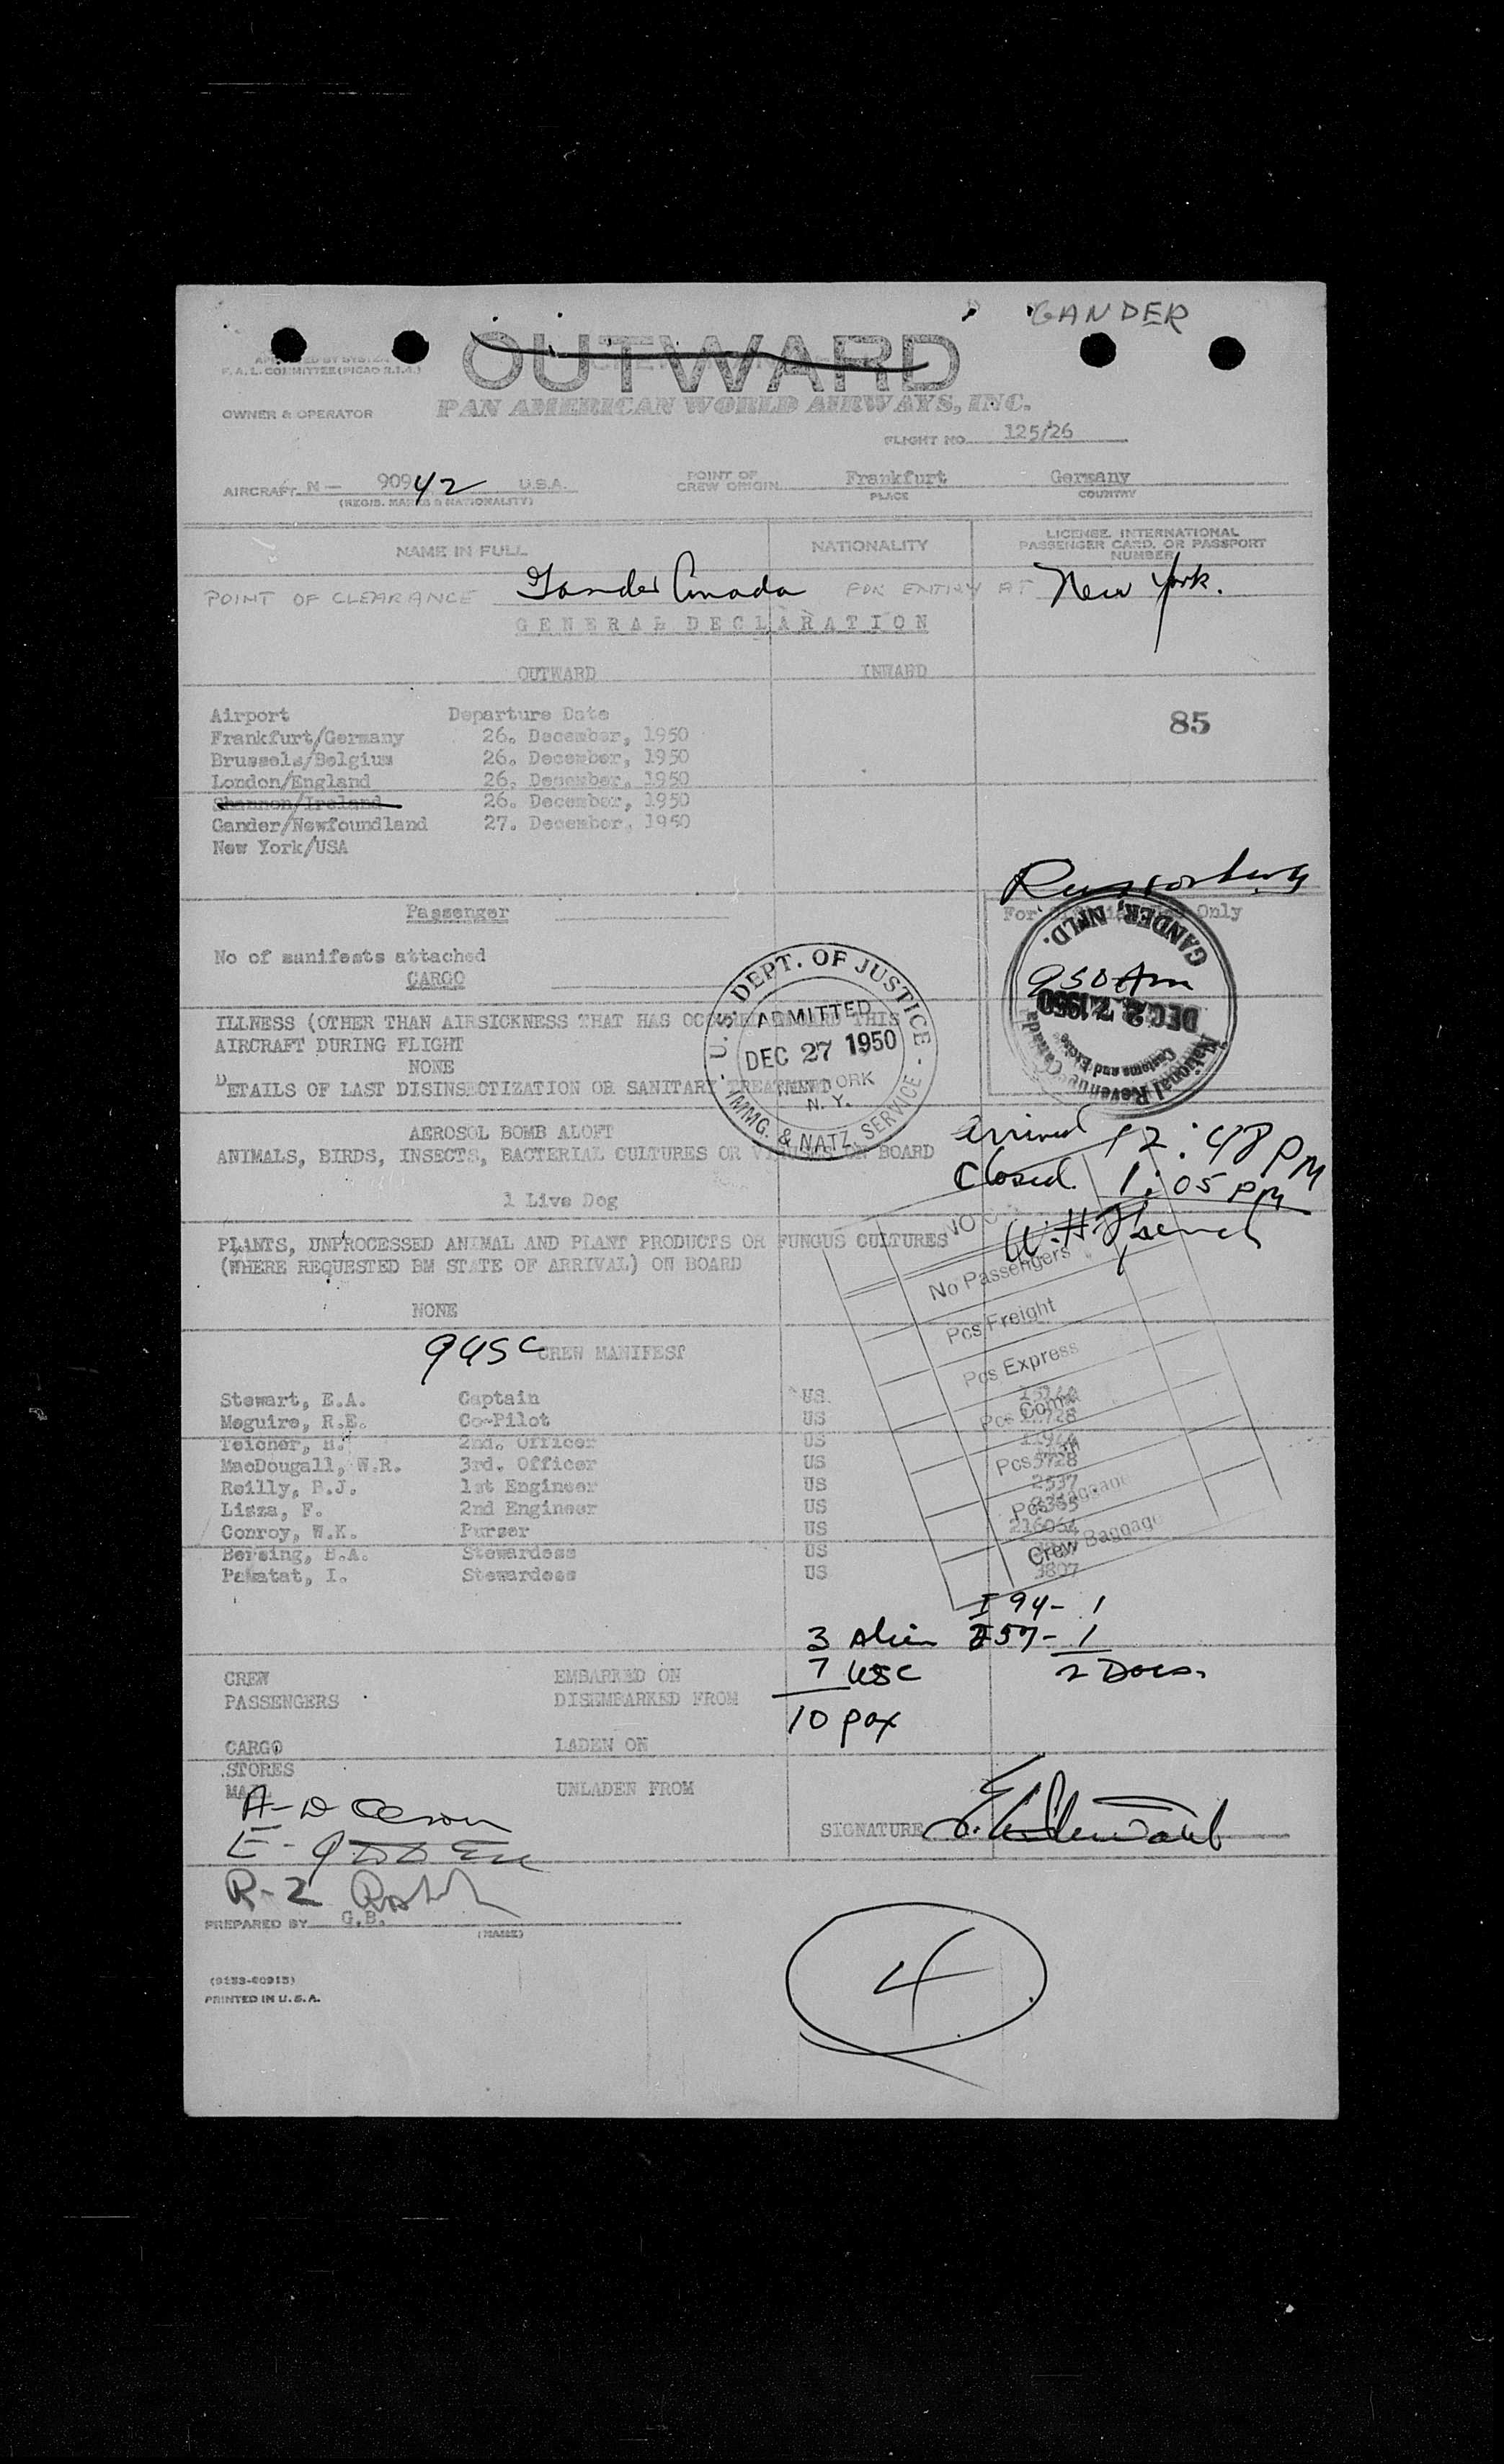 GANDER
OUTWARD
F.A.L. COMMITTEE (PICAO R.1.4.)
OWNER & OPERATOR PAN AMERICAN WORLD AIRWAYS, INC.
FLIGHT NO. 125/26
AIRCRAFT N- 90942 U.S.A. POINT OF CREW ORIGIN Frankfurt Germany
(REGIS. MARKS & NATIONALITY) PLACE COUNTRY
NAME IN FULL NATIONALITY LICENSE, INTERNATIONAL PASSENGER CARD, OR PASSPORT NUMBER
POINT OF CLEARANCE Gander Canada FOR ENTRY AT New York.
GENERAL DECLARATION
OUTWARD INWARD
Airport Departure Date
85
Frankfurt/Germany 26. December, 1950
Brussels/Belgium 26. December, 1950
London/England 26. December, 1950
Shannon/Ireland 26. December, 1950
Gander/Newfoundland 27. December, 1950
New York/USA
Passenger For Only
No of manifests attached
CARGO
GANDER, NFLD.
950 Am
DEC 27 1950
National Revenue Canada
Customs and Excise
U.S. DEPT. OF JUSTICE
ADMITTED
DEC 27 1950
NEW YORK
N.Y.
IMMG. & NATZ. SERVICE
ILLNESS (OTHER THAN AIRSICKNESS THAT HAS OCCURRED ABOARD THIS
AIRCRAFT DURING FLIGHT
NONE
DETAILS OF LAST DISINSECTIZATION OR SANITARY TREATMENT
AEROSOL BOMB ALOFT
arrived 12:48 PM
ANIMALS, BIRDS, INSECTS, BACTERIAL CULTURES OR VIRUSES ON BOARD
Closed 1:05 PM
1 Live Dog
PLANTS, UNPROCESSED ANIMAL AND PLANT PRODUCTS OR FUNGUS CULTURES
(WHERE REQUESTED BM STATE OF ARRIVAL) ON BOARD
NONE
No Passengers
Pcs Freight
Pcs Express
Pcs Comat
Pcs
Pcs Baggage
Crew Baggage
9 USC CREW MANIFEST
Stewart, E.A. Captain US.
Meguire, R.E. Co-Pilot US
Teicher, H. 2nd. Officer US
MacDougall, W.R. 3rd. Officer US 5728
Reilly, P.J. 1st Engineer US 2537
Lisza, F. 2nd Engineer US
Conroy, W.K. Purser US 216064
Bersing, B.A. Stewardess US
Pakatat, I. Stewardess US 3807
I 94- 1
3 Alien I 57- 1
7 USC 2 Docs.
10 pax
CREW EMBARKED ON
PASSENGERS DISEMBARKED FROM
CARGO LADEN ON
STORES
MAIL UNLADEN FROM
SIGNATURE E.A. Stewart
R-2
PREPARED BY G.B.
(NAME)
(9153-60915)
PRINTED IN U.S.A.
4